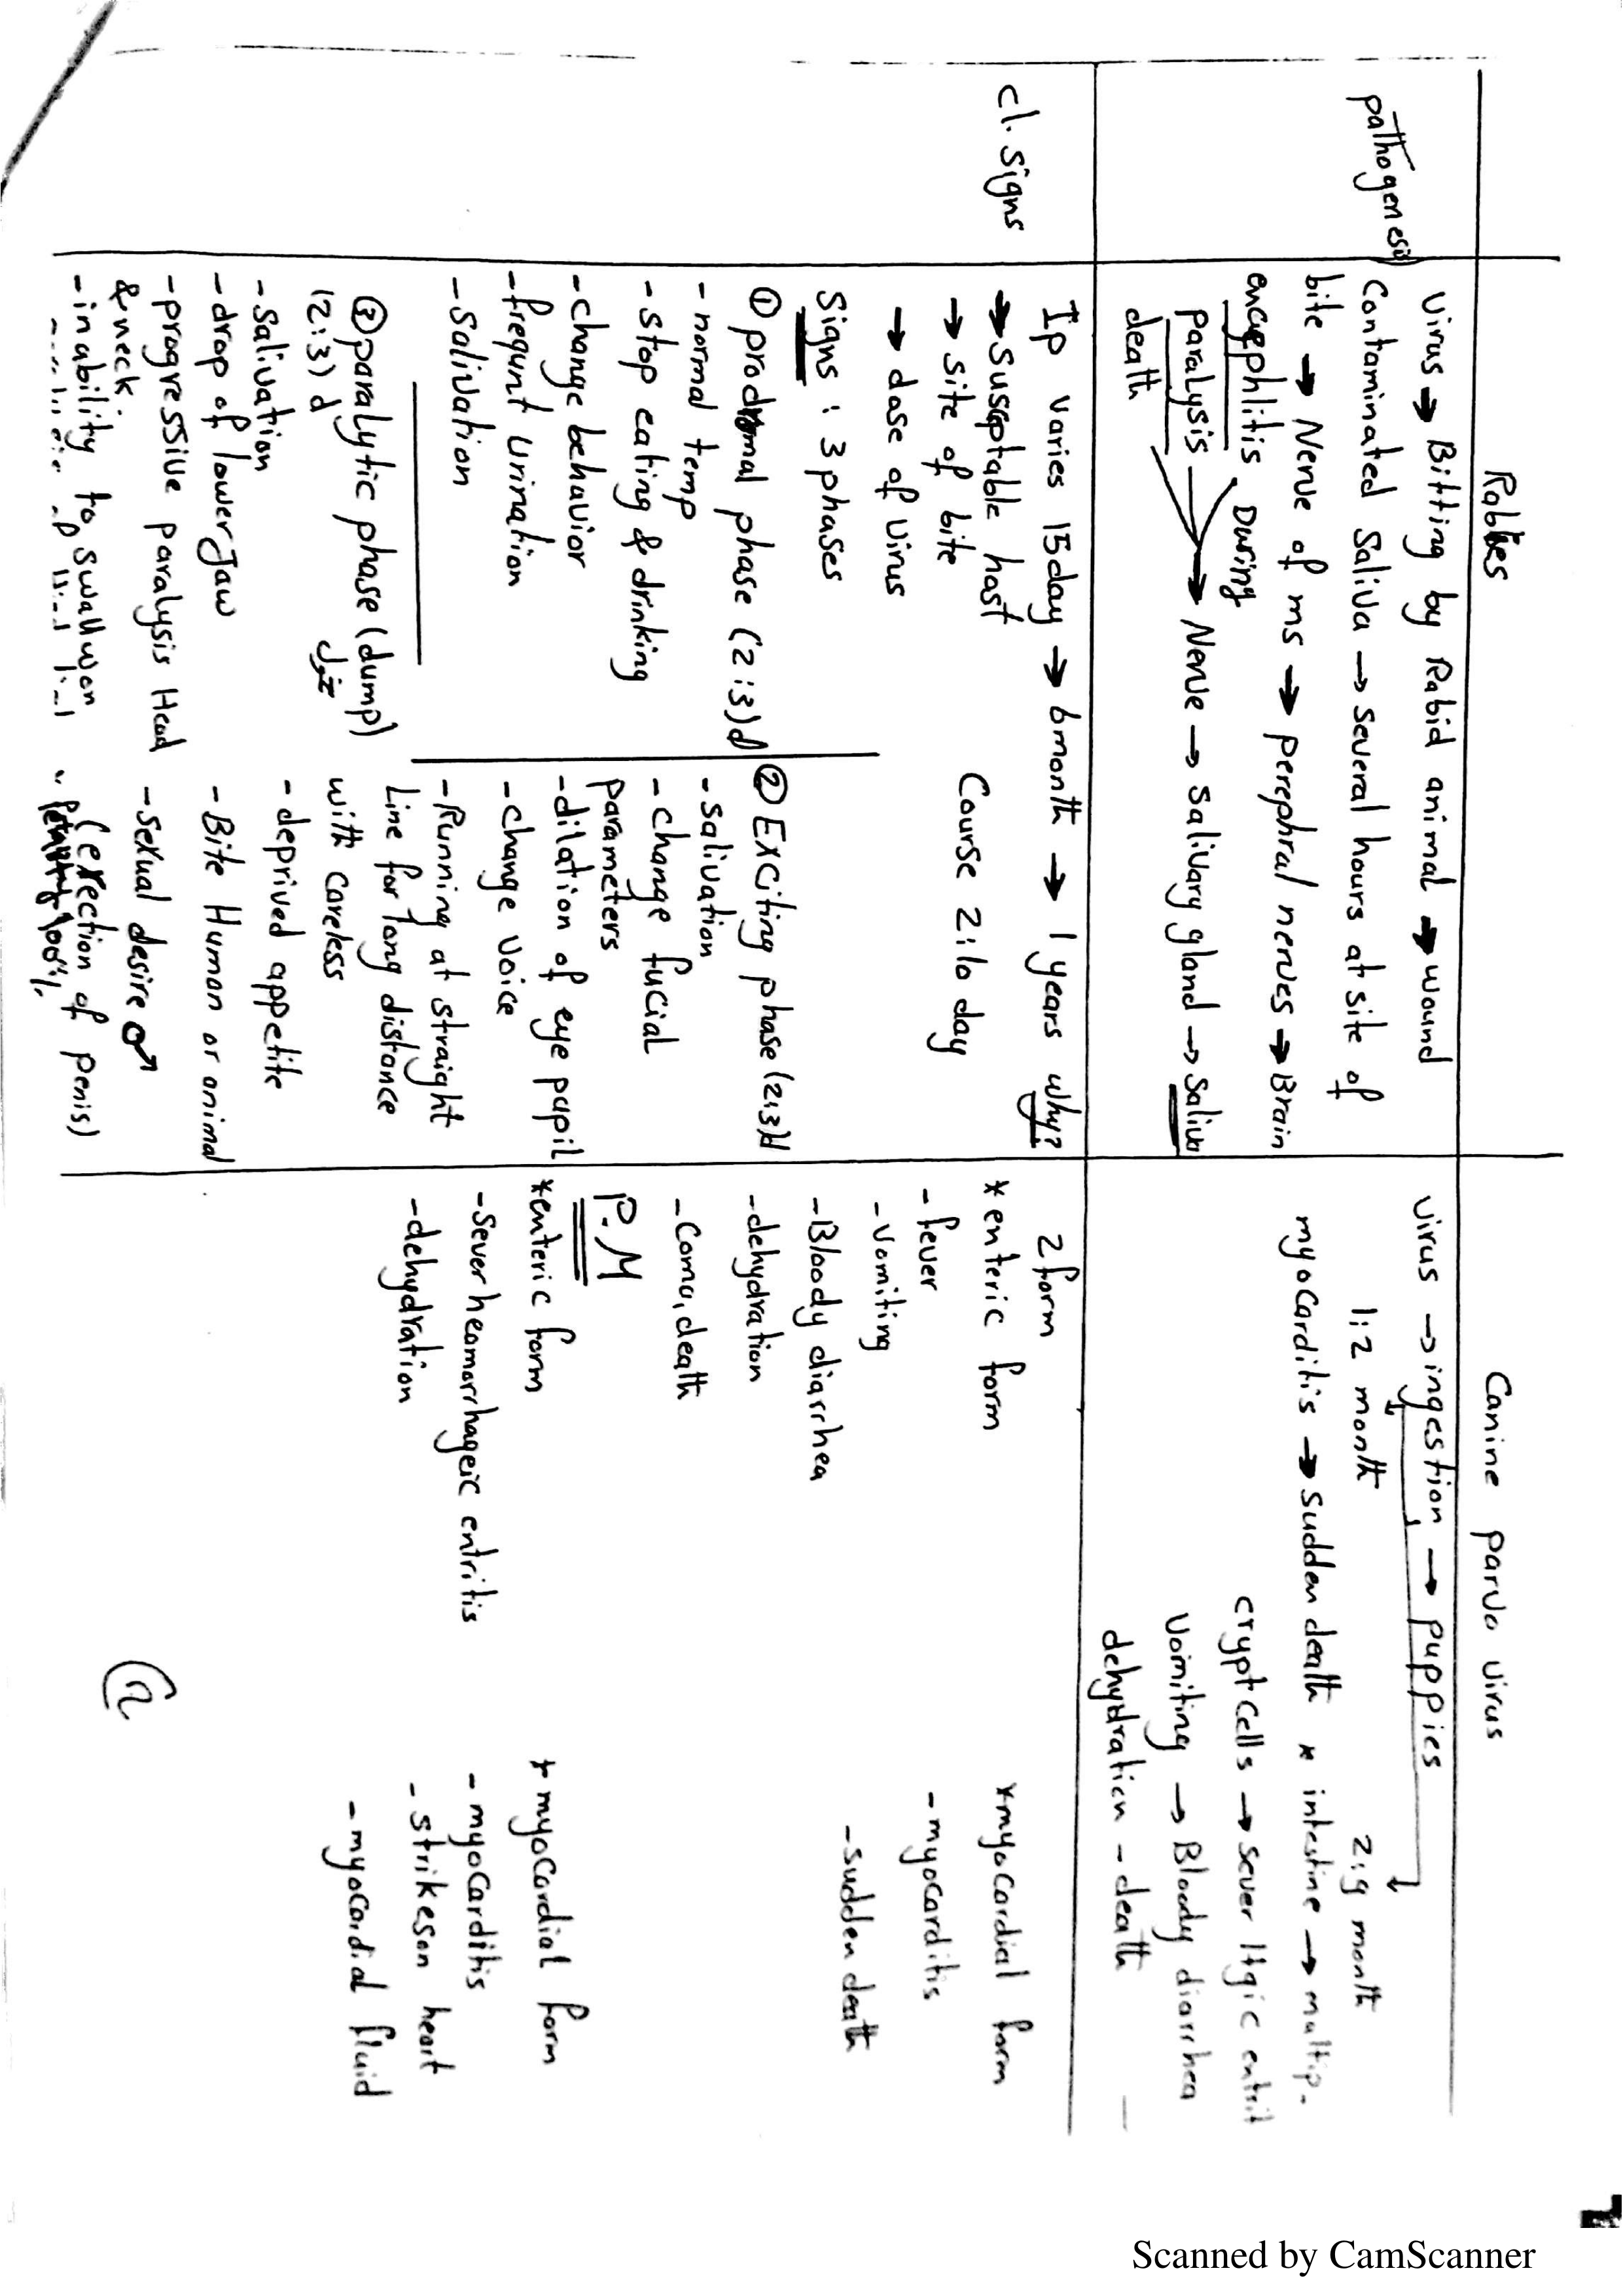 Rabies
Canine parvo virus
pathogenesis
Virus → Bitting by Rabid animal → wound
Contaminated Saliva → Several hours at site of
bite → Nerve of ms → perephral nerves → Brain
encephlitis
During
paralysis → Nerve → Salivary gland → Saliva
death
virus → ingestion → puppies
1:2 month
2:9 month
myocarditis → sudden death * intestine → multip.
crypt cells → sever Hgic entrit
Vomiting → Bloody diarrhea
dehydration - death
cl. signs
Ip varies 15day → 6month → 1 years why?
→ Susceptable host
→ site of bite
→ dose of virus
Course 2:10 day
Signs : 3 phases
① prodromal phase (2:3)d
- normal temp
- stop eating & drinking
- change behavior
- frequnt urination
- Salivation
② Exciting phase (2:3)d
- salivation
- change fucial
parameters
- dilation of eye pupil
- change voice
- Running at straight
Line for long distance
with careless
- deprived appetite
- Bite Human or animal
- Sexual desire ♂
(erection of penis)
③ paralytic phase (dump)
(2:3) d
- Salivation
- drop of lower Jaw
- progressive paralysis Head
& neck
- inability to swallwon
2 form
* enteric form
- fever
- vomiting
- Bloody diarrhea
- dehydration
- Coma, death
*myocardial form
- myocarditis
- sudden death
P.M
*enteric form
- Sever heamorrhageic entritis
- dehydration
* myocardial form
- myocarditis
- strikeson heart
- myocardial fluid
Scanned by CamScanner